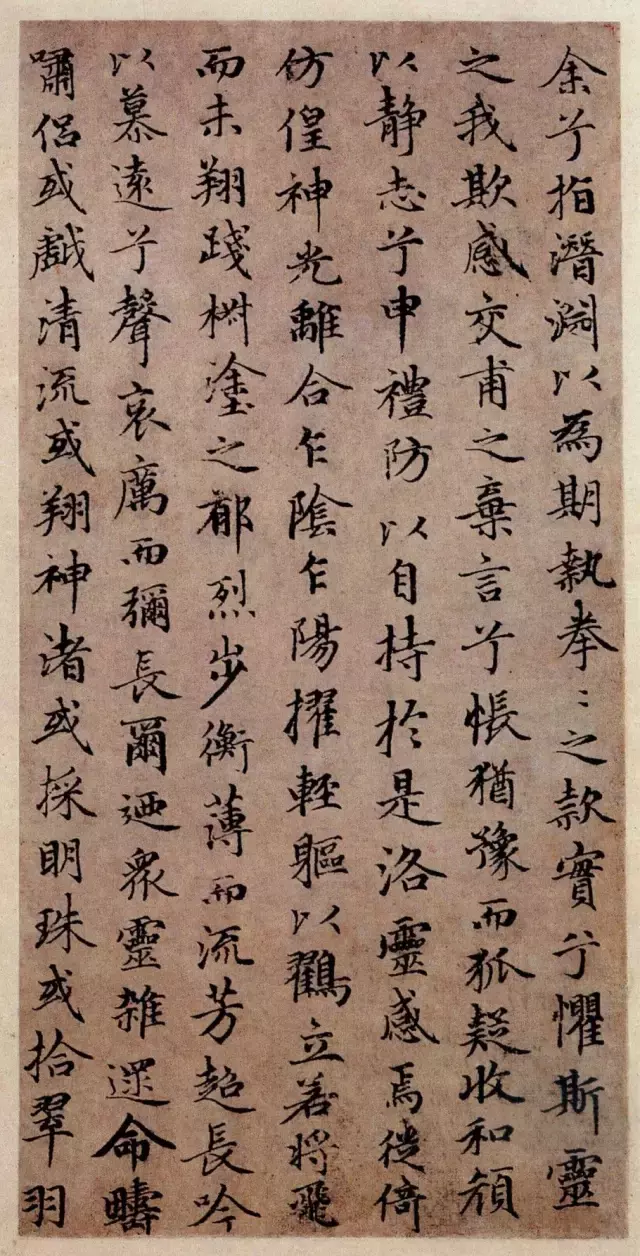 余兮指潛淵以為期執拳〻之款實兮懼斯靈
之我欺感交甫之棄言兮悵猶豫而狐疑收和顏
以静志兮申禮防以自持於是洛靈感焉徙倚
仿偟神光離合乍陰乍陽擢輕軀以鶴立若將飛
而未翔踐椒塗之郁烈步衡薄而流芳超長吟
以慕遠兮聲哀厲而彌長爾迺眾靈雜遝命疇
嘯侶或戲清流或翔神渚或採明珠或拾翠羽